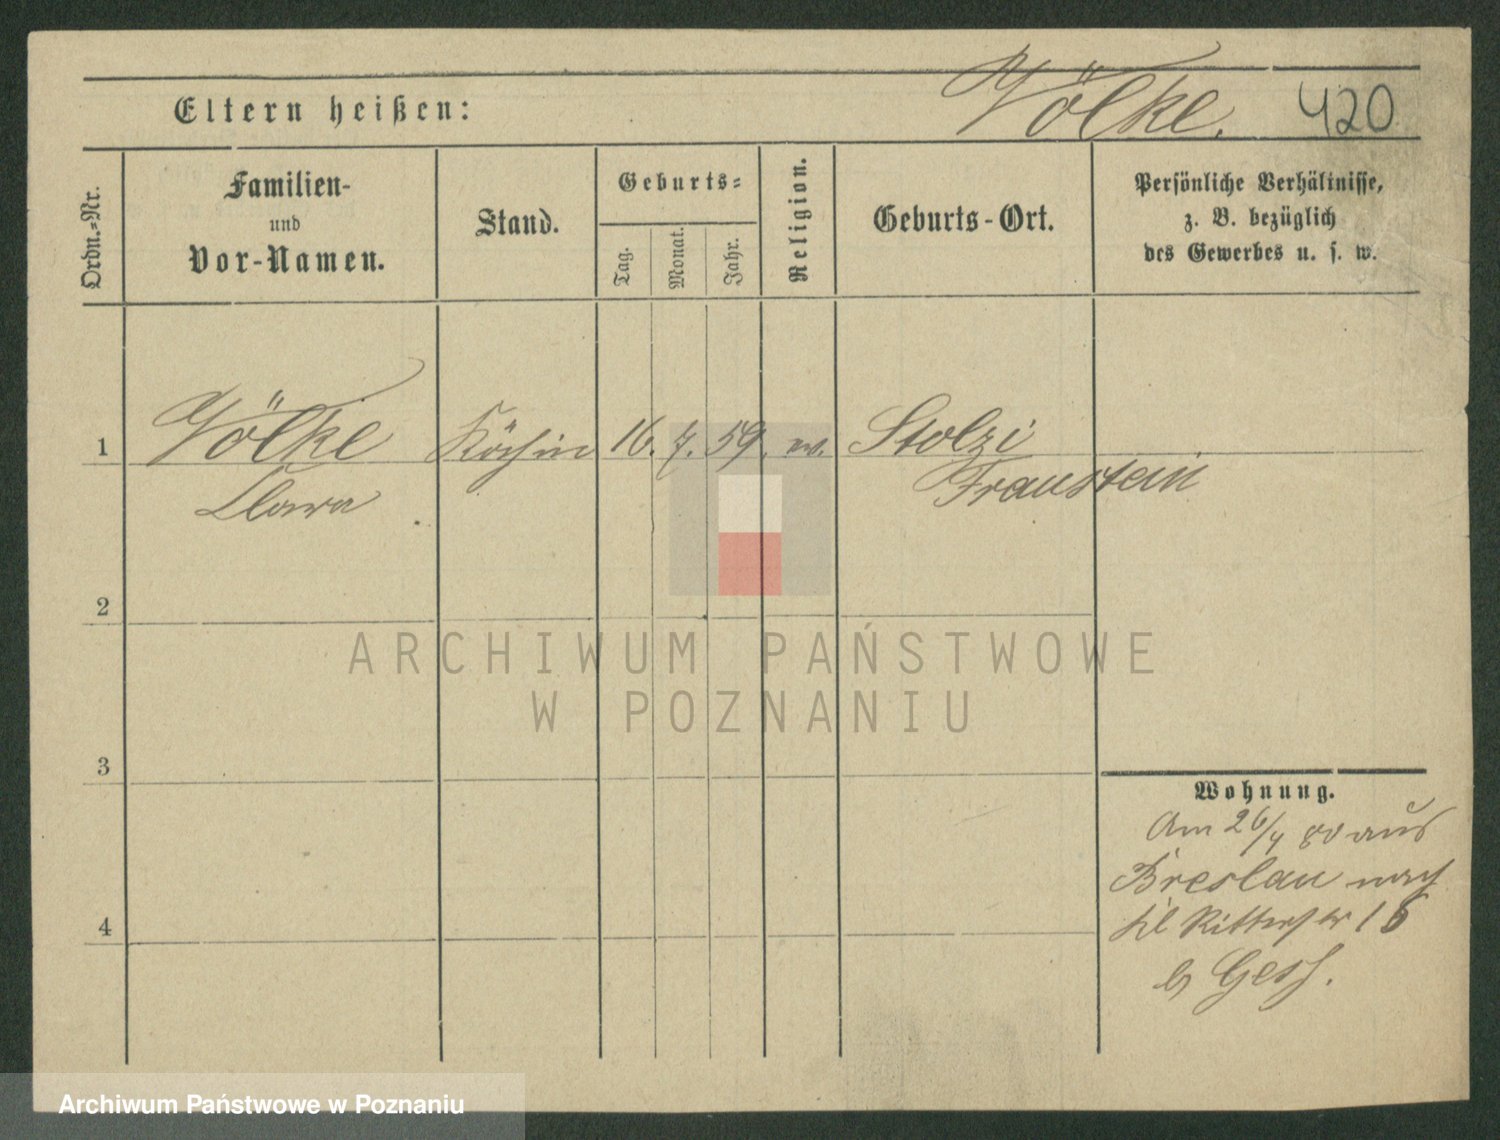 Völke. 420
Eltern heißen:
Ordn.-Nr.
Familien-
und
Vor-Namen.
Stand.
Geburts-
Tag.
Monat.
Jahr.
Religion.
Geburts-Ort.
Persönliche Verhältnisse,
z. B. bezüglich
des Gewerbes u. s. w.
1 Völke Köchin 16. 7. 59. Stolzi
Clara Fraustein
2
3
4
Wohnung.
Am 26/4 80 aus
Breslau nach
Ritterstr 16
b Gess.
ARCHIWUM PAŃSTWOWE
W POZNANIU
Archiwum Państwowe w Poznaniu